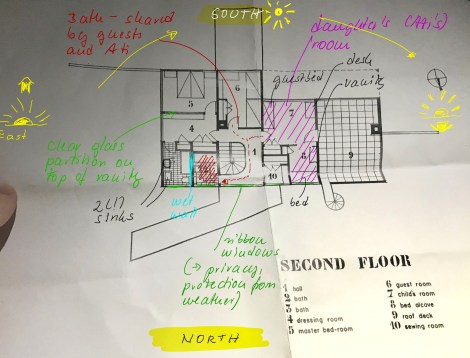 SOUTH
Bath - shared
by guests
and Ati
daughter's (Ati's)
room
desk
vanity
guestbed
East
5
6
7
4
1
8
9
10
clear glass
partition on
top of vanity
2 LIT
sinks
wet
bed
ribbon
windows
(→ privacy,
protection from
weather)
NORTH
SECOND FLOOR
1 hall
2 bath
3 bath
4 dressing room
5 master bed-room
6 guest room
7 child's room
8 bed alcove
9 roof deck
10 sewing room